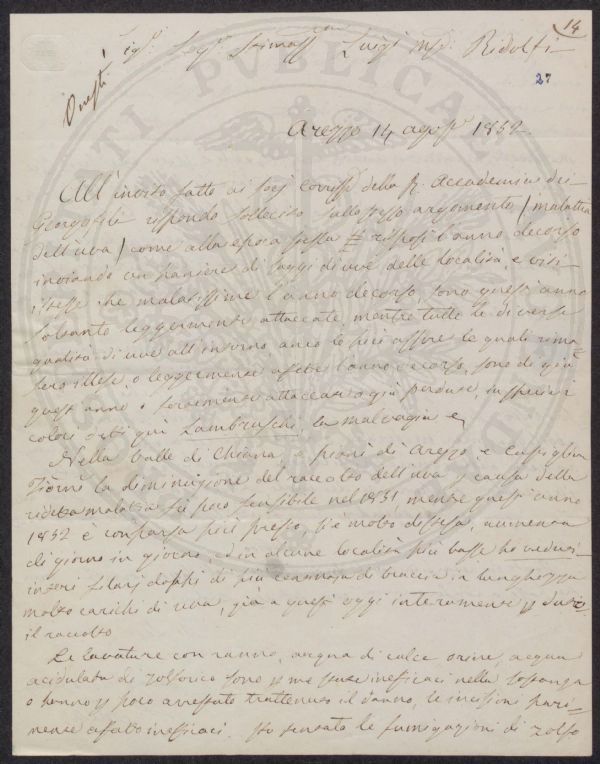 14
Sig.r Luigi M.se Ridolfi
27
Arezzo 14 agosto 1852.
All'invito fatto ai Socj corrisp. della R. Accademia dei
Georgofili rispondo sollecito sullo stesso argomento / malattia
dell'uva / come alla epoca stessa risposi l'anno decorso
inviando un paniere di saggi di uve delle località, e viti
istesse che malatissime l'anno decorso, sono quest'anno
soltanto leggermente attaccate, mentre tutte le diverse
qualità di uve all'intorno anco le più assire le quali rima
sero illese, o leggermente afette l'anno decorso, sono di già
quest'anno o attaccate o già perdute,
colori detti qui Lambruschi, la malvagia e
Nella Valle di Chiana, a piani di Arezzo e Castiglion
Fiorno la diminuzione del raccolto dell'uva p causa della
ridetta malattia fù poco sensibile nel 1851, mentre quest'anno
1852 è comparsa più presto, si è molto difusa, aumenta
di giorno in giorno, ed in alcune località più basse ho veduti
interi filari doppj di più centinaja di braccia in lunghezza
molto carichi di uva, già a quest'oggi interamente p
il raccolto
Le lavature con ranno, acqua di calce orine, acqua
acidulata di zolforico sono p me state ineficaci nella sostanza
o hanno p poco arrestato trattenuto il danno, le incisioni pari-
mente affatto ineficaci. Ho tentato le fumigazioni di zolfo